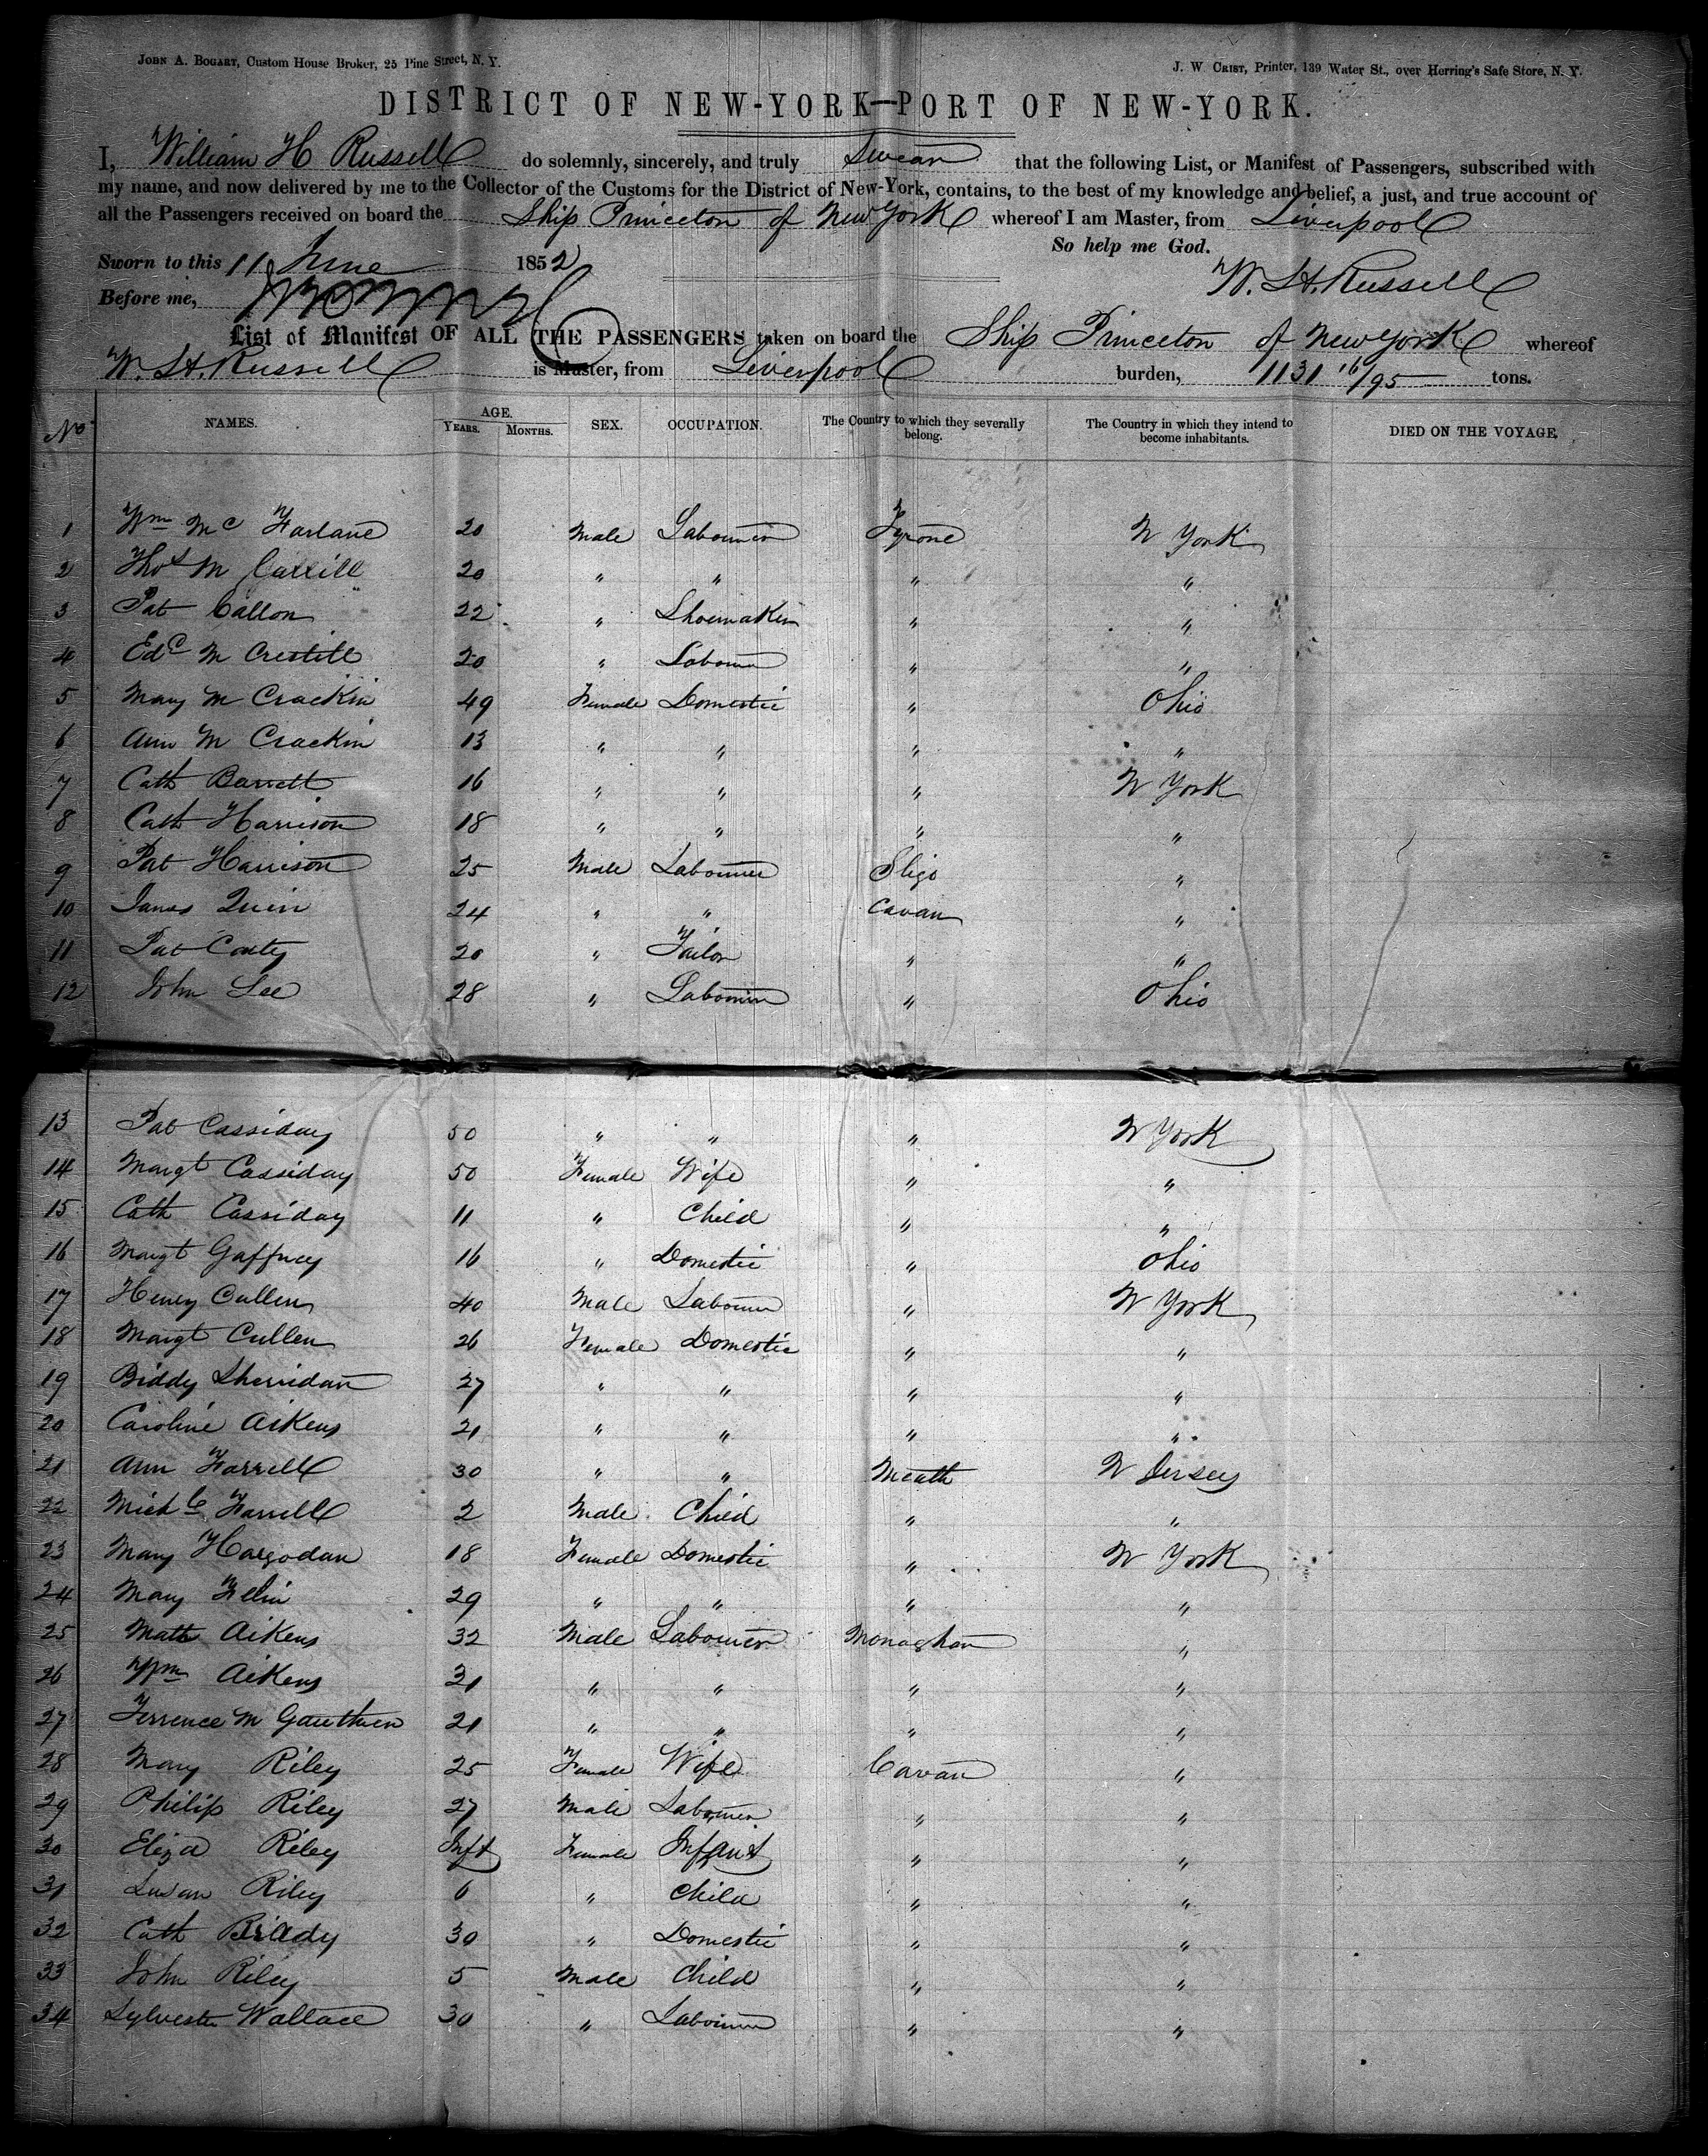 JOHN A. BOGART, Custom House Broker, 25 Pine Street, N. Y. J. W. CRIST, Printer, 139 Water St., over Herring's Safe Store, N. Y.
DISTRICT OF NEW-YORK—PORT OF NEW-YORK.
I, William H Russell do solemnly, sincerely, and truly Swear that the following List, or Manifest of Passengers, subscribed with
my name, and now delivered by me to the Collector of the Customs for the District of New-York, contains, to the best of my knowledge and belief, a just, and true account of
all the Passengers received on board the Ship Princeton of New York whereof I am Master, from Liverpool
So help me God.
Sworn to this 11 June 1852
W. H. Russell
Before me,
List of Manifest OF ALL THE PASSENGERS taken on board the Ship Princeton of New York whereof
W. H. Russell is Master, from Liverpool burden, 1131 16/95 tons.
No NAMES. AGE. YEARS. MONTHS. SEX. OCCUPATION. The Country to which they severally belong. The Country in which they intend to become inhabitants. DIED ON THE VOYAGE.
1 Wm Mc Farlane 20 Male Labourer Tyrone N York
2 Thos M 20 " " " "
3 Pat Callon 22 " Shoemaker " "
4 Edd M 20 " Labourer " "
5 Mary M Crackin 49 Female Domestic " Ohio
6 Ann M Crackin 13 " " " "
7 Cath Barrett 16 " " " N York
8 Cath Harrison 18 " " " "
9 Pat Harrison 25 Male Labourer Sligo "
10 James Quin 24 " " Cavan "
11 Pat 20 " Tailor " "
12 John Lee 28 " Labourer " Ohio
13 Pat Cassiday 50 " " " N York
14 Margt Cassiday 50 Female Wife " "
15 Cath Cassiday 11 " Child " "
16 Margt Gaffney 16 " Domestic " Ohio
17 Henry Cullen 40 Male Labourer " N York
18 Margt Cullen 26 Female Domestic " "
19 Biddy Sherridan 27 " " " "
20 Caroline Aikens 21 " " " "
21 Ann Farrell 30 " " Meath N Jersey
22 Michl Farrell 2 Male Child " "
23 Mary Hargodan 18 Female Domestic " N York
24 Mary 29 " " " "
25 Math Aikens 32 Male Labourer Monaghan "
26 Wm Aikens 31 " " " "
27 Terrence M 21 " " " "
28 Mary Riley 25 Female Wife Cavan "
29 Philip Riley 27 Male Labourer " "
30 Eliza Riley Inft Female Infant " "
31 Susan Riley 6 " Child " "
32 Cath Brady 30 " Domestic " "
33 John Riley 5 Male Child " "
34 Sylvester Wallace 30 " Labourer " "